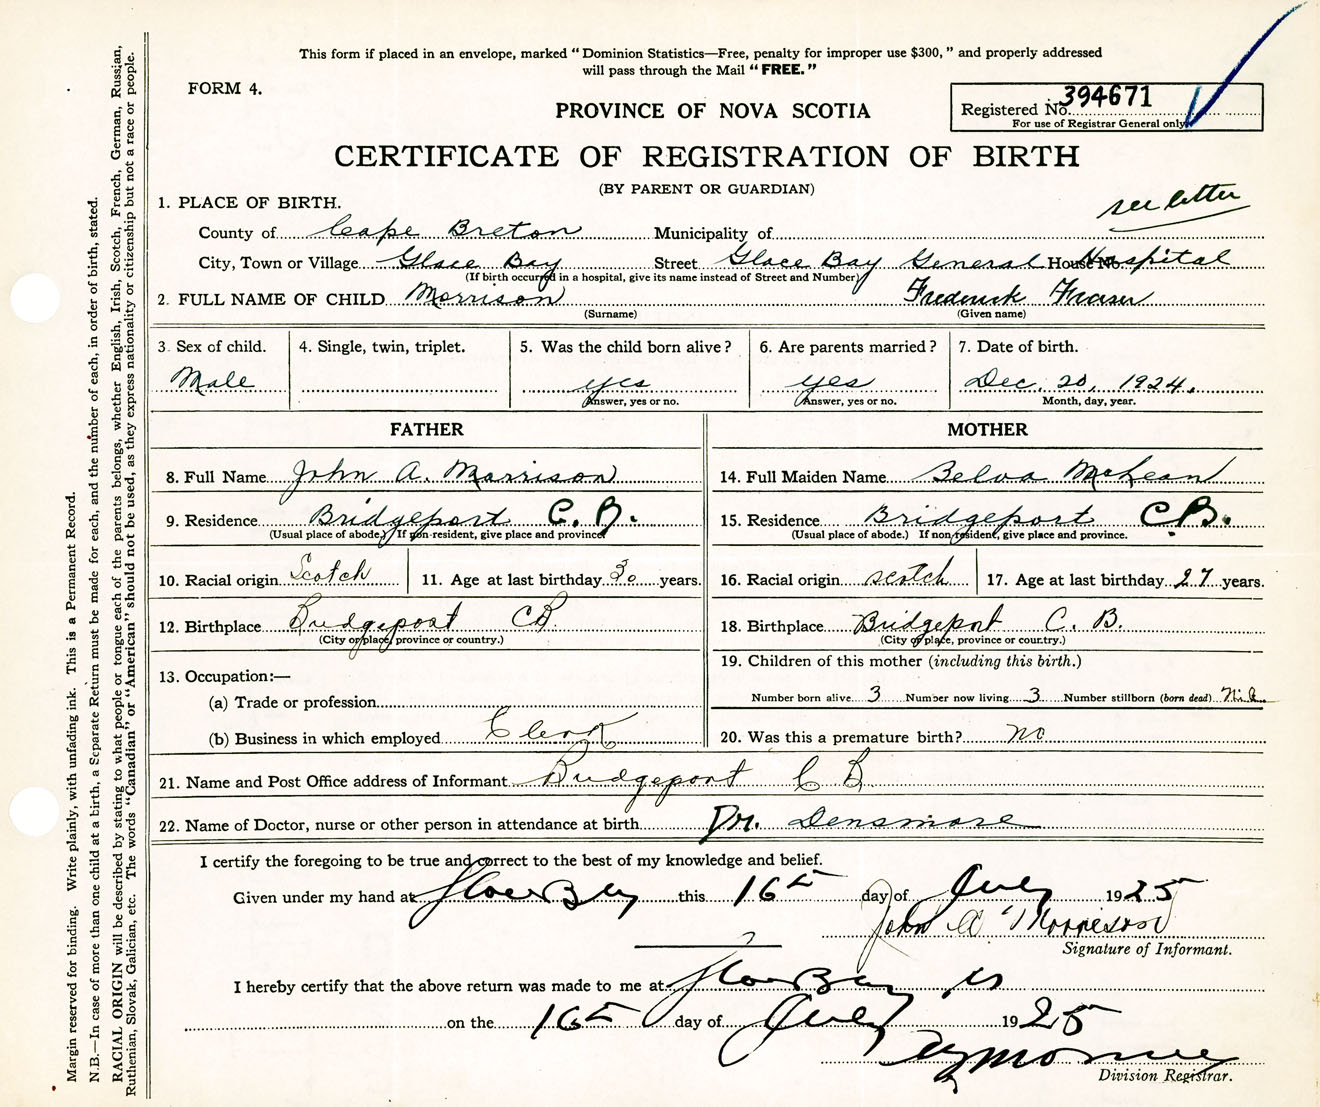 This form if placed in an envelope, marked "Dominion Statistics—Free, penalty for improper use $300," and properly addressed
will pass through the Mail "FREE."
FORM 4.
Registered No. 394671
For use of Registrar General only
PROVINCE OF NOVA SCOTIA
CERTIFICATE OF REGISTRATION OF BIRTH
(BY PARENT OR GUARDIAN)
see letter
1. PLACE OF BIRTH.
County of Cape Breton Municipality of
City, Town or Village Glace Bay Street Glace Bay General Hospital House No.
(If birth occurred in a hospital, give its name instead of Street and Number)
2. FULL NAME OF CHILD Morrison Frederick Fraser
(Surname) (Given name)
3. Sex of child. 4. Single, twin, triplet. 5. Was the child born alive? 6. Are parents married? 7. Date of birth.
Male yes yes Dec. 20, 1924.
Answer, yes or no. Answer, yes or no. Month, day, year.
FATHER MOTHER
8. Full Name John A. Morrison 14. Full Maiden Name Belva McLean
9. Residence Bridgeport C.B. 15. Residence Bridgeport C.B.
(Usual place of abode.) If non-resident, give place and province. (Usual place of abode.) If non-resident, give place and province.
10. Racial origin Scotch 11. Age at last birthday 30 years. 16. Racial origin scotch 17. Age at last birthday 27 years.
12. Birthplace Bridgeport CB. 18. Birthplace Bridgeport C. B.
(City or place, province or country.) (City or place, province or country.)
13. Occupation:— 19. Children of this mother (including this birth.)
(a) Trade or profession Number born alive 3 Number now living 3 Number stillborn (born dead) Nil
(b) Business in which employed Clerk 20. Was this a premature birth? no
21. Name and Post Office address of Informant Bridgeport C B
22. Name of Doctor, nurse or other person in attendance at birth Dr. Densmore
I certify the foregoing to be true and correct to the best of my knowledge and belief.
Given under my hand at Glace Bay this 16th day of July 1925
John A Morrison
Signature of Informant.
I hereby certify that the above return was made to me at Glace Bay NS
on the 16th day of July 1925
Division Registrar.
Margin reserved for binding. Write plainly, with unfading ink. This is a Permanent Record.
N.B.—In case of more than one child at a birth, a Separate Return must be made for each, and the number of each, in order of birth, stated.
RACIAL ORIGIN will be described by stating to what people or tongue each of the parents belongs, whether English, Irish, Scotch, French, German, Russian,
Ruthenian, Slovak, Galician, etc. The words "Canadian" or "American" should not be used, as they express nationality or citizenship but not a race or people.